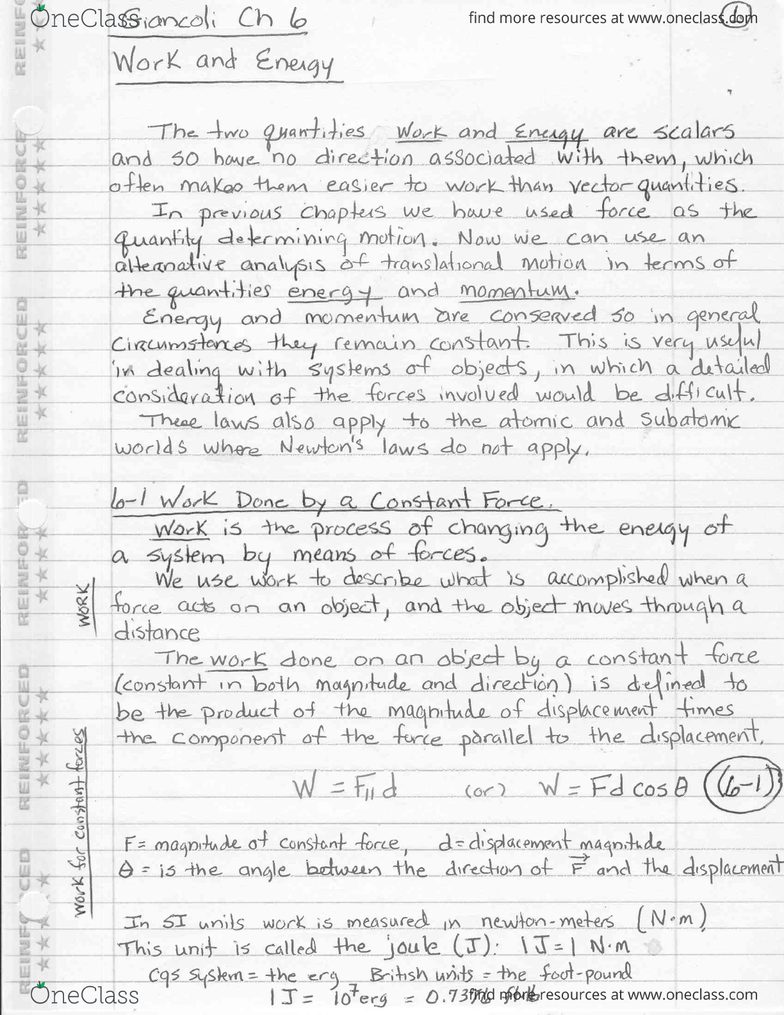 OneClass
Giancoli Ch 6
find more resources at www.oneclass.com
6
Work and Energy
The two quantities Work and Energy are scalars
and so have no direction associated with them, which
often makes them easier to work than vector quantities.
In previous chapters we have used force as the
quantity determining motion. Now we can use an
alternative analysis of translational motion in terms of
the quantities energy and momentum.
Energy and momentum are conserved so in general
circumstances they remain constant. This is very useful
in dealing with systems of objects, in which a detailed
consideration of the forces involved would be difficult.
These laws also apply to the atomic and subatomic
worlds where Newton's laws do not apply.
6-1 Work Done by a Constant Force.
Work is the process of changing the energy of
a system by means of forces.
We use work to describe what is accomplished when a
force acts on an object, and the object moves through a
distance
WORK
The work done on an object by a constant force
(constant in both magnitude and direction) is defined to
be the product of the magnitude of displacement times
the component of the force parallel to the displacement.
W = F∥ d (or) W = Fd cos θ (6-1)
work for constant forces
F = magnitude of constant force, d = displacement magnitude
θ = is the angle between the direction of F⃗ and the displacement
In SI units work is measured in newton-meters (N·m)
This unit is called the joule (J): 1J = 1 N·m
Cgs system = the erg British units = the foot-pound
1J = 10⁷ erg = 0.7376 ft·lb
OneClass
find more resources at www.oneclass.com
REINFORCED
REINFORCED
REINFORCED
REINFORCED
REINFORCED